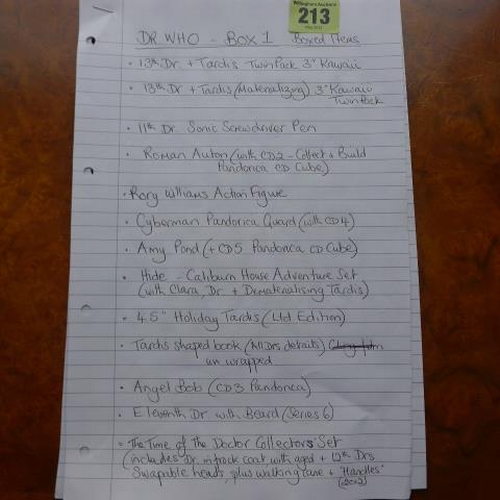 Willingham Auctions
213
DR WHO - BOX 1 Boxed Items
• 13th Dr + Tardis Twin Pack 3" Kawaii
• 13th Dr + Tardis (Materializing) 3" Kawaii
Twin Pack
• 11th Dr. Sonic Screwdriver Pen
• Roman Auton (with CD2 - Collect + Build
Pandorica CD Cube)
• Rory Williams Action Figure
• Cyberman Pandorica Guard (with CD4)
• Amy Pond (+ CD5 Pandorica CD Cube)
• Hide - Caliburn House Adventure Set
(with Clara, Dr. + Dematerialising Tardis)
• 4.5" Holiday Tardis (Ltd Edition)
• Tardis shaped book (All Drs details)
un wrapped
• Angel Bob (CD3 Pandorica)
• Eleventh Dr with Beard (Series 6)
• The Time of The Doctor Collectors' Set
(includes Dr. in frock coat with aged + 12th Drs
Swapable heads, plus walking cane + 'Handles'